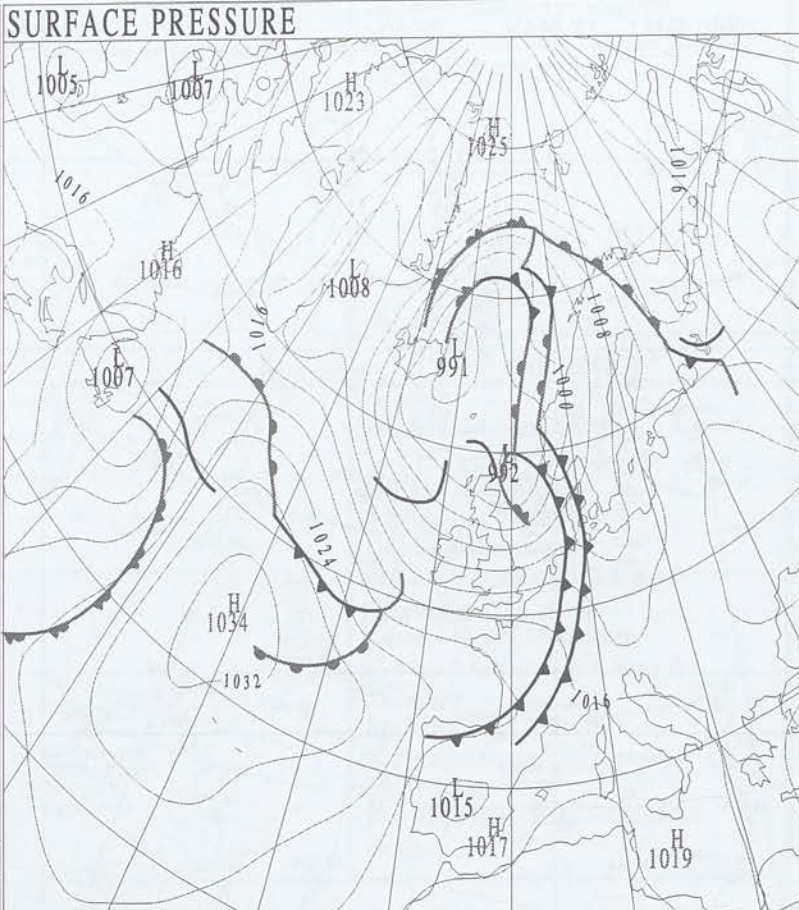 SURFACE PRESSURE
L
1005
L
1007
H
1023
H
1025
1016
1016
H
1016
L
1008
1016
1008
L
1007
L
991
1000
L
992
1024
H
1034
1032
1016
L
1015
H
1017
H
1019